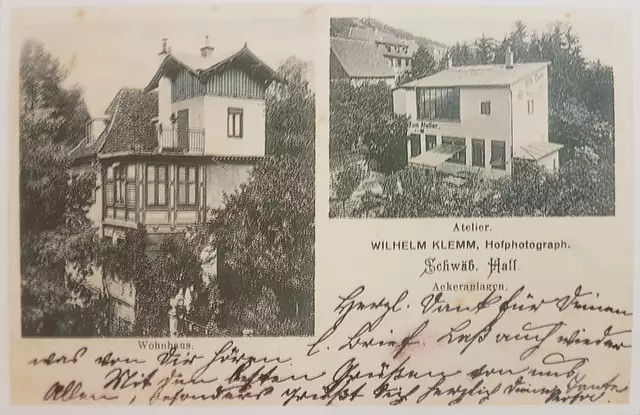 Atelier.
WILHELM KLEMM, Hofphotograph.
Schwäb. Hall.
Ackeranlagen.
Wohnhaus.
Zum Atelier.
Herzl. Dank für Deinen
l. Brief. Laß auch wieder
was von Dir hören.
Mit den besten Grüßen von uns
Allen, besonders grüßt Dich herzlich Deine Tante